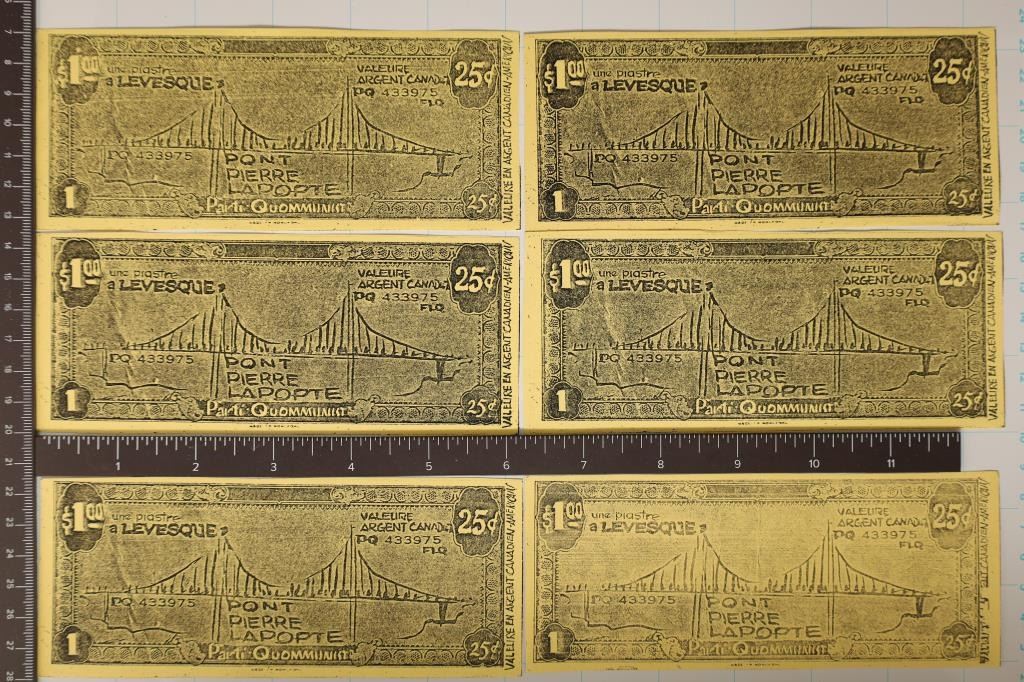 $1.00 une piastre VALEURE 25¢
a LEVESQUE ARGENT CANADA
PQ 433975
FLQ
PQ 433975 PONT
PIERRE
LAPOPTE
1 Parti QUOMMUNIST 25¢
VALEURE EN ARGENT CANADIEN-AMERICAIN
$1.00 une piastre VALEURE 25¢
a LEVESQUE ARGENT CANADA
PQ 433975
FLQ
PQ 433975 PONT
PIERRE
LAPOPTE
1 Parti QUOMMUNIST 25¢
VALEURE EN ARGENT CANADIEN-AMERICAIN
$1.00 une piastre VALEURE 25¢
a LEVESQUE ARGENT CANADA
PQ 433975
FLQ
PQ 433975 PONT
PIERRE
LAPOPTE
1 Parti QUOMMUNIST 25¢
VALEURE EN ARGENT CANADIEN-AMERICAIN
$1.00 une piastre VALEURE 25¢
a LEVESQUE ARGENT CANADA
PQ 433975
FLQ
PQ 433975 PONT
PIERRE
LAPOPTE
1 Parti QUOMMUNIST 25¢
VALEURE EN ARGENT CANADIEN-AMERICAIN
1 2 3 4 5 6 7 8 9 10 11
$1.00 une piastre VALEURE 25¢
a LEVESQUE ARGENT CANADA
PQ 433975
FLQ
PQ 433975 PONT
PIERRE
LAPOPTE
1 Parti QUOMMUNIST 25¢
VALEURE EN ARGENT CANADIEN-AMERICAIN
$1.00 une piastre VALEURE 25¢
a LEVESQUE ARGENT CANADA
PQ 433975
FLQ
PQ 433975 PONT
PIERRE
LAPOPTE
1 Parti QUOMMUNIST 25¢